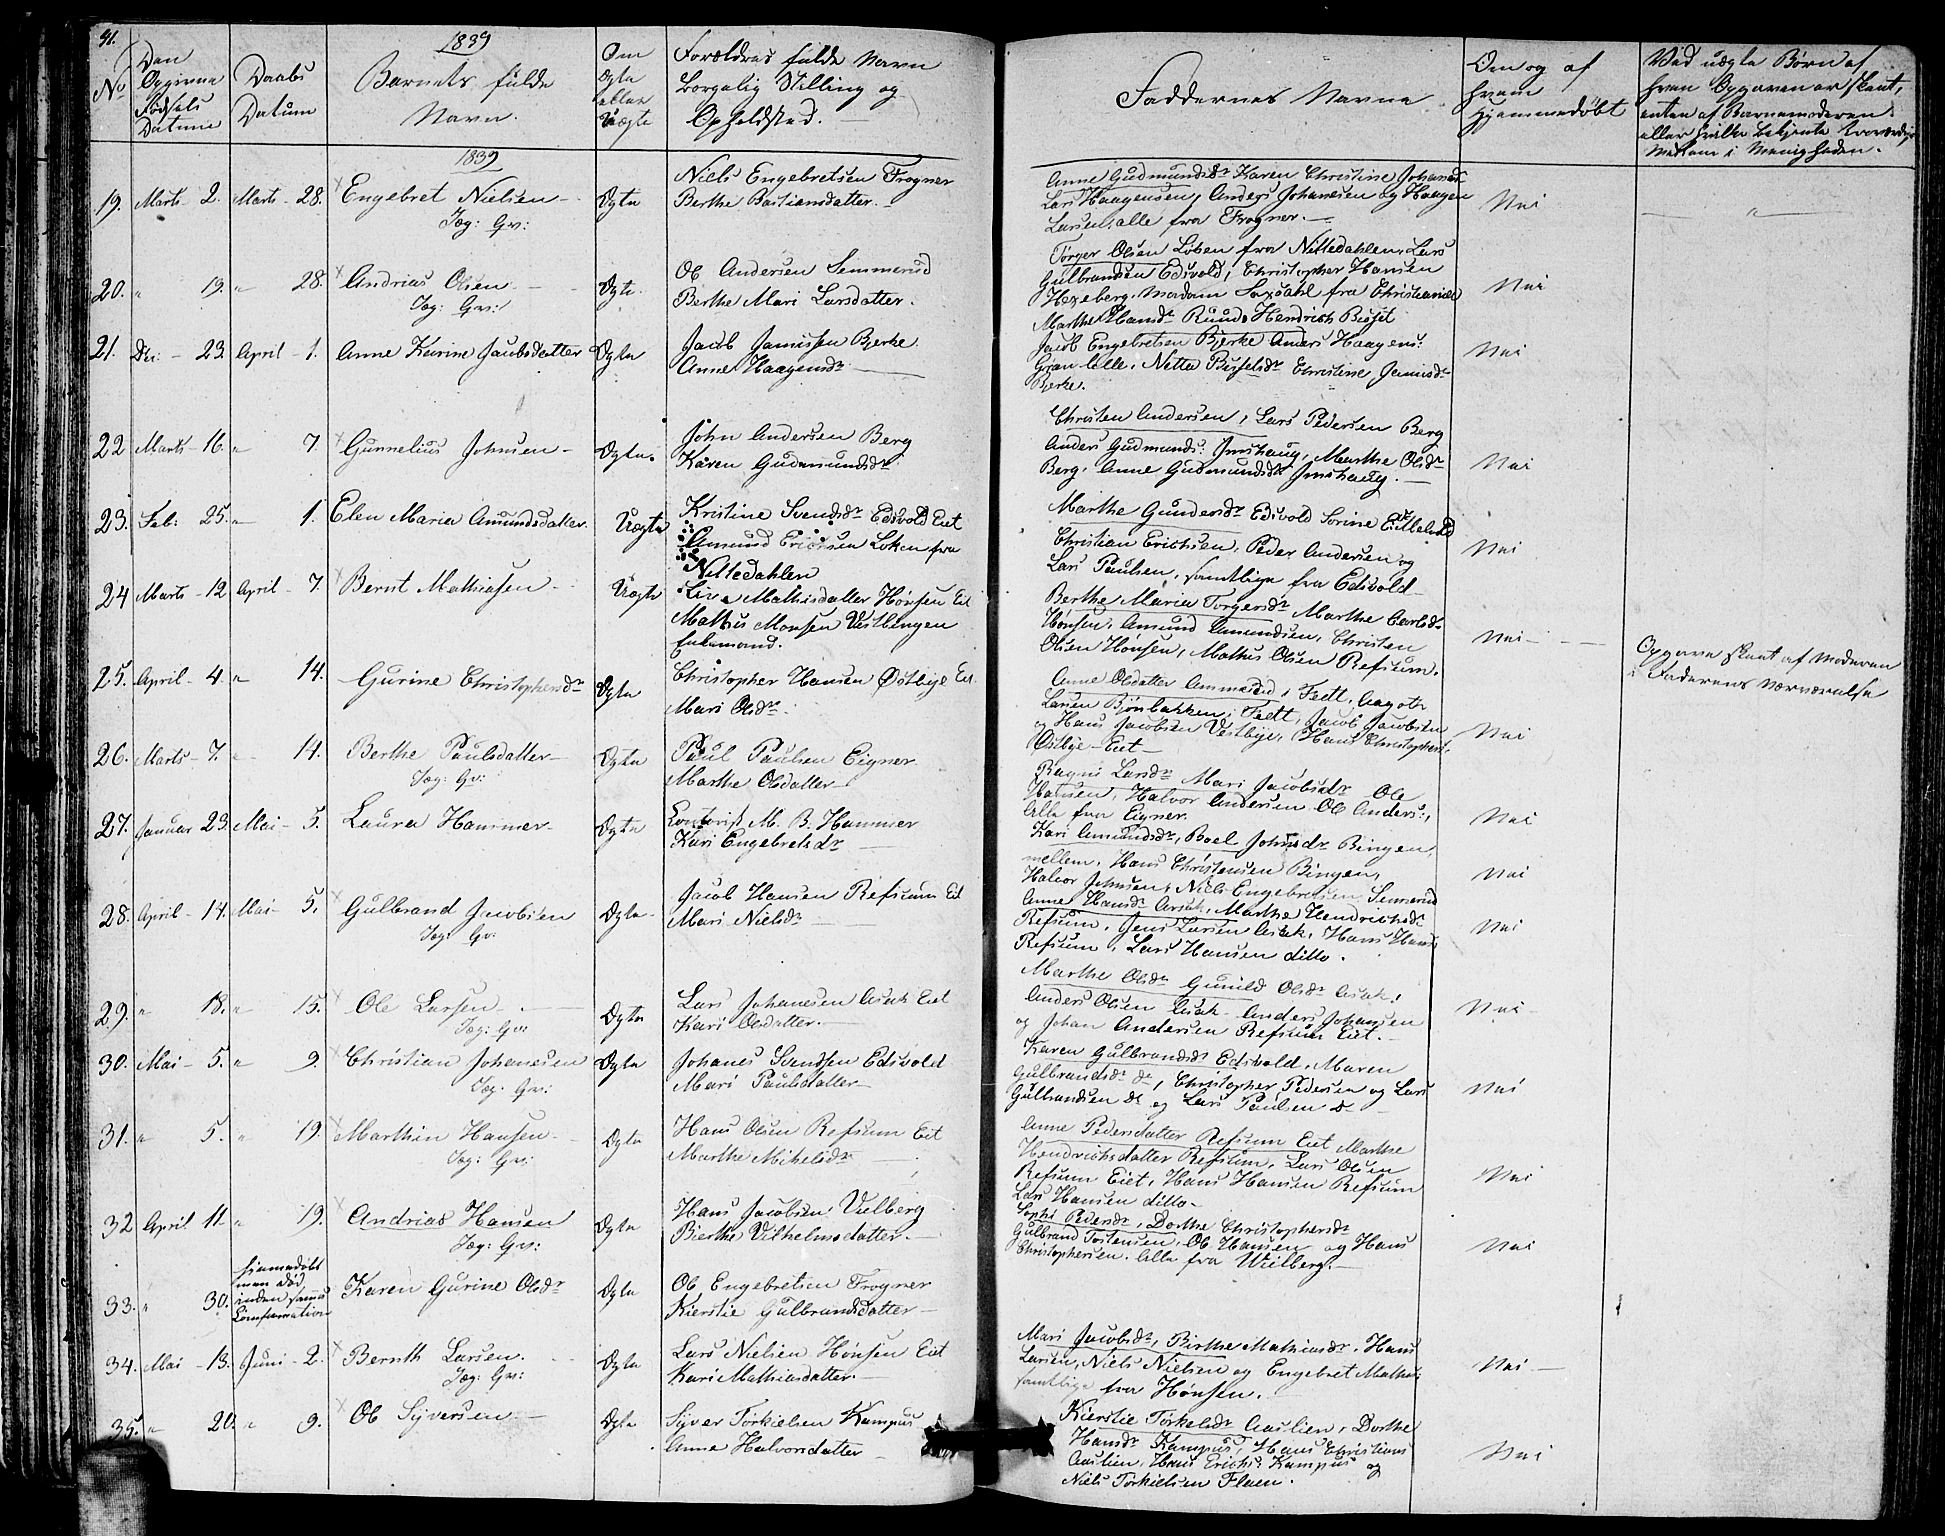 41.
1839
No
Den Opgivne Fødsels Datum
Daabs Datum
Barnets fulde Navn.
Om Ægte eller Uægte
Forældres fulde Navn Borgelig Stilling og Opholdsted.
Faddernes Navne
Om og af hvem Hjemmedøbt
Ved uægte Børn af
hvem Opgaven er skeet,
enten af Barnemoderen
eller hvilke bekjente troværdige
Medlem i Menigheden.
1839
19. Marts 2. Marts 28. Engebret Nielsen Ægte
Jæg: Gv:
Niels Engebretsen Frogner
Berthe Bastiansdatter.
Anne Gudmundsdr Karen Christine Johansdr
Lars Haagensen, Anders Johanesen og Haagen
Larsen, alle fra Frogner.
Nei
20. " 19. " 28. Andrias Olsen Ægte
Jæg: Gv:
Ole Andersen Semmerud
Berthe Mari Larsdatter.
Torger Olsen Løken fra Nittedahlen, Lars
Gulbrandsen Edsvold, Christopher Hansen
Hexeberg, Madam fra Christiania
Marthe Hansdr Ruud,
Nei
21. 23. April 1. Anne Karine Jacobsdatter Ægte
Jacob Bjerke
Anne Haagensdr
Hendrich
Jacob Engebretsen Bjerke Anders Haagens:
Christine
Bjerke.
Nei
22 Marts 16. " 7. Gunnelius Johnsen Ægte.
John Andersen Berg
Karen Gudmundsdr
Christen Andersen, Lars Pedersen Berg
Anders Gudmunds: Imshaug, Marthe Olsdr
Berg, Anne Gudmundsdr Imshaug.
Nei
23. Feb: 25. " 1. Elen Maria Amundsdatter. Uægte
Kristine Svendsdr Edsvold Eiet
Amund Erichsen Løken fra
Nittedahlen
Marthe Gundersdr Edsvold Sorine
Christian Erichsen, Peder Andersen og
Lars Paulsen, samtlige fra Edsvold
Nei
24 Marts 12 April 7. Bernt Mathiasen Uægte
Mathisdatter Hønsen Eiet
Mathis Monsen
Enkemand.
Berthe Maria Torgersdr Marthe Carlsdr
Hønsen, Amund Amundsen, Christen
Olsen Hønsen, Mathis Olsen Refsum.
Nei
Opgave skeet af Moderen
i Faderens Nærværelse
25. April 4. " 14. Gurine Christophersdr Ægte
Christopher Hansen Østbye Eiet
Mari Olsdr
Anne Olsdatter
Larsen Bjønbakken, Jacob Jacobsen
og Hans Jacobsen Vestbye, Hans Christophers:
Østbye Eiet
Nei
26. Marts 7. " 14. Berthe Paulsdatter Ægte
Jæg: Gv:
Paul Paulsen Eigner
Marthe Olsdatter
Ragni Larsdr Mari Jacobsdr Ole
Hansen, Halvor Andersen Ole Anders:,
Alle fra Eigner.
Nei
27. Januar 23. Mai 5. Laura Hammer Ægte
Contorist M. B. Hammer
Kari Engebretsdr
Kari Amundsdr, Boel Johnsdr Bingen,
mellem, Hans Christensen Bingen,
Halvor Johnsen, Niels Engebretsen
Nei
28. April 14. Mai 5. Gulbrand Jacobsen Ægte
Jæg: Gv:
Jacob Hansen Refsum Eiet
Mari Nielsdr
Anne Hansdr Asak, Marthe Hendrichsdr
Refsum, Jens Larsen Asak, Hans Hans:
Refsum, Lars Hansen ditto.
Nei
29. " 18. " 15. Ole Larsen Ægte
Jæg: Gv:
Lars Johanesen Asak Eiet
Kari Olsdatter.
Marthe Olsdr Gunild Olsdr Asak,
Anders Olsen Asak, Anders Johansen
og Johan Andersen Refsum Eiet.
Nei
30. Mai 5. " 9. Christian Johanesen Ægte
Jæg: Gv:
Johanes Svendsen Edsvold
Mari Paulsdatter
Karen Gulbrandsdr Edsvold, Maren
Gulbrandsdr do, Christopher Pedersen og Lars
Gulbrandsen do og Lars Paulsen do
Nei
31. " 5. " 19. Marthin Hansen Ægte
Jæg: Gv:
Hans Olsen Refsum Eiet
Marthe Mikelsdr
Anne Pedersdatter Refsum Eiet Marthe
Hendrichsdatter Refsum, Lars Olsen
Refsum Eiet, Hans Hansen Refsum
Lars Hansen ditto
Nei
32 April 11. " 19. Andrias Hansen Ægte
Jæg: Gv:
Hans Jacobsen Vielberg
Birthe Vilhelmsdatter.
Sophi Pedersdr, Dorthe Christophersdr
Gulbrand Torstensen, Ole Hansen og Hans
Christophersen. Alle fra Wielberg.
Nei
33. " 30. hjemmedøbt
men død
inden
Confirmation
Karen Gurine Olsdr Ægte
Ole Engebretsen Frogner
Kierstie Gulbrandsdatter
34. Mai 13. Juni 2. Bernth Larsen. Ægte
Jæg: Gv:
Lars Nielsen Hønsen Eiet
Kari Mathiasdatter.
Mari Jacobsdr, Birthe Mathiasdr, Hans
Larsen, Niels Nielsen og Engebret Mathis:
samtlige fra Hønsen.
Nei
35. " 20. " 9. Ole Syversen Ægte
Syver Torkielsen Kampus
Anne Halvorsdatter
Kierstie Torkelsdr Aaslien, Dorthe
Hansdr Kampus, Hans Christians
Aaslien, Hans Erichs: Kampus og
Niels Torkielsen Flaen.
Nei